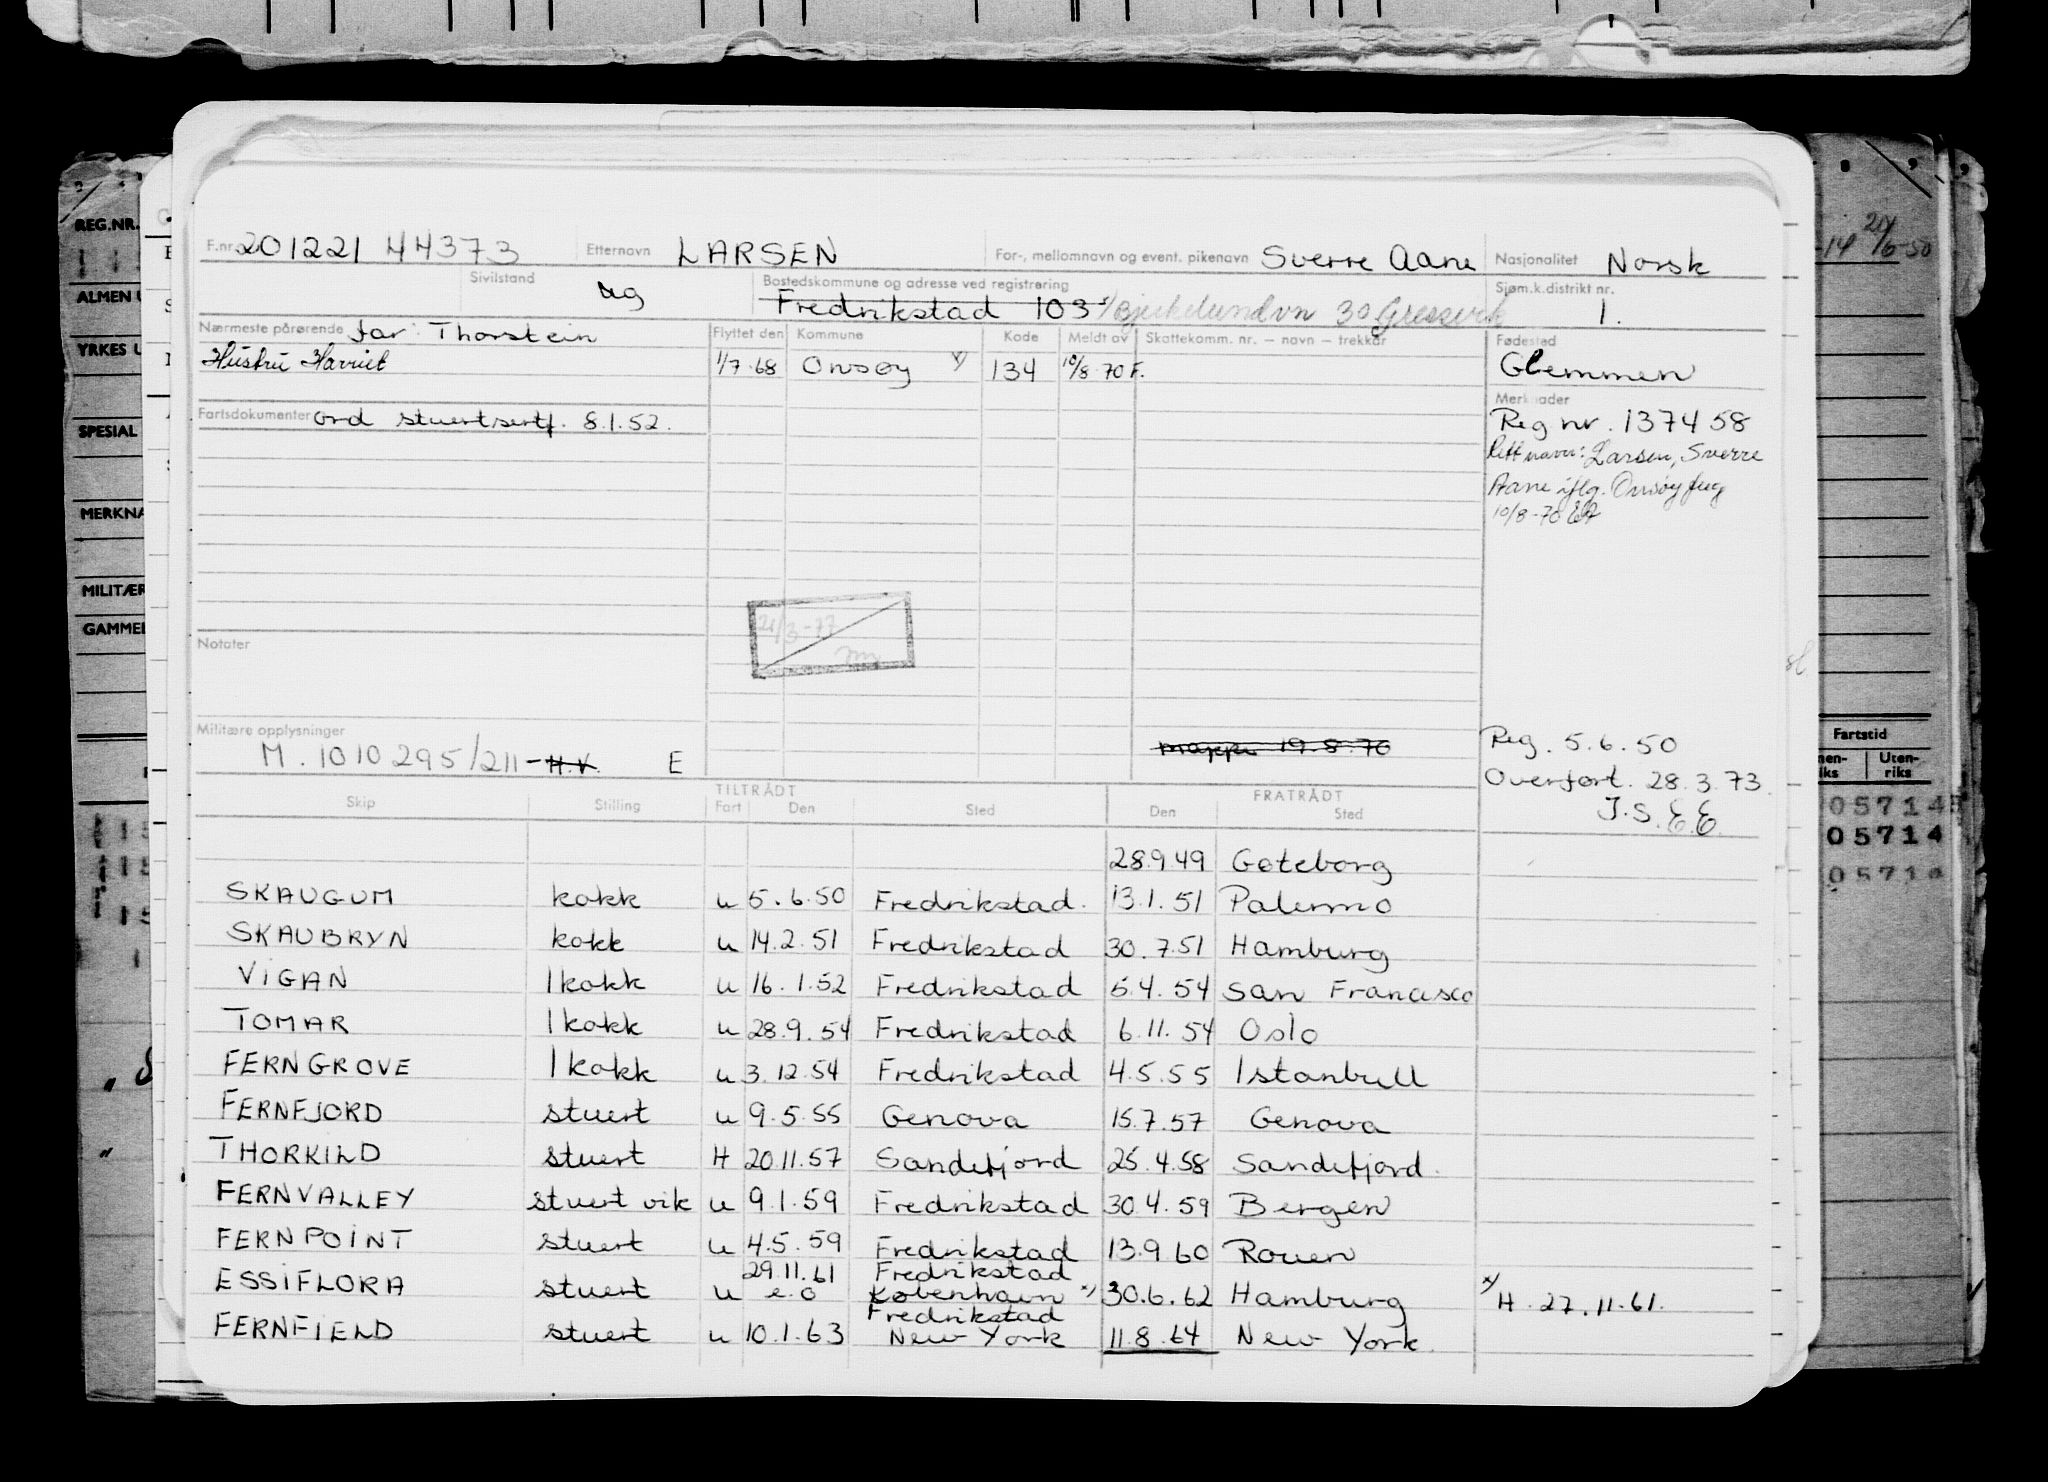 REG.NR.
ALMEN U
YRKES U
SPESIAL
MERKNA
MILITÆR
GAMMEL
8 9 9
-14 20/6-50
Fartstid
nen-riks Uten-riks
05714
05714
05714
F.nr. 201221 44373 Etternavn LARSEN For-, mellomnavn og event. pikenavn Sverre Aane Nasjonalitet Norsk
Sivilstand ug Bostedskommune og adresse ved registrering Sjøm.k.distrikt nr.
Fredrikstad 103 x/ Bjørkelundvn 30 Gressvik 1.
Nærmeste pårørende far: Thorstein Flyttet den Kommune Kode Meldt av Skattekomm. nr. – navn – trekkår Fødested
Hustru Harriet 1/7-68 Onsøy x/ 134 10/8-70 F. Glemmen
Fartsdokumenter ord stuertsertf. 8.1.52. Merknader
Reg nr. 137458
Rett navn: Larsen, Sverre
Aane iflg. Onsøy
10/8-70
21/3-77
Notater
Militære opplysninger
M. 1010295/211 - H.V. E mappe 19.8.70
Reg. 5.6.50
Overført. 28.3.73.
J.S. E.E
TILTRÅDT FRATRÅDT
Skip Stilling Fart Den Sted Den Sted
28.9.49 Gøteborg
SKAUGUM kokk u 5.6.50 Fredrikstad. 13.1.51 Palermo
SKAUBRYN kokk u 14.2.51 Fredrikstad 30.7.51 Hamburg
VIGAN 1kokk u 16.1.52 Fredrikstad 5.4.54 San Francisco
TOMAR 1kokk u 28.9.54 Fredrikstad 6.11.54 Oslo
FERNGROVE 1kokk u 3.12.54 Fredrikstad 4.5.55 Istanbull
FERNFJORD stuert u 9.5.55 Genova 15.7.57 Genova
THORKILD stuert H 20.11.57 Sandefjord 25.4.58 Sandefjord.
FERNVALLEY stuert vik u 9.1.59 Fredrikstad 30.4.59 Bergen
FERNPOINT stuert u 4.5.59 Fredrikstad 13.9.60 Rouen
29.11.61 Fredrikstad
ESSIFLORA stuert u e.o København x/ 30.6.62 Hamburg x/ H. 27.11.61.
Fredrikstad
FERNFIELD stuert u 10.1.63 New York 11.8.64 New York.